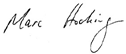 Marc Hocking